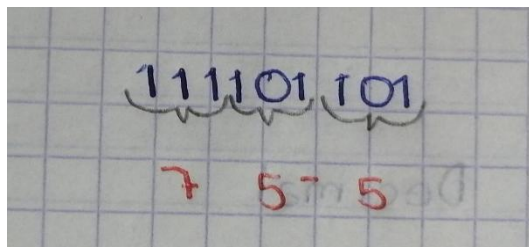 111101 101
7 5 5